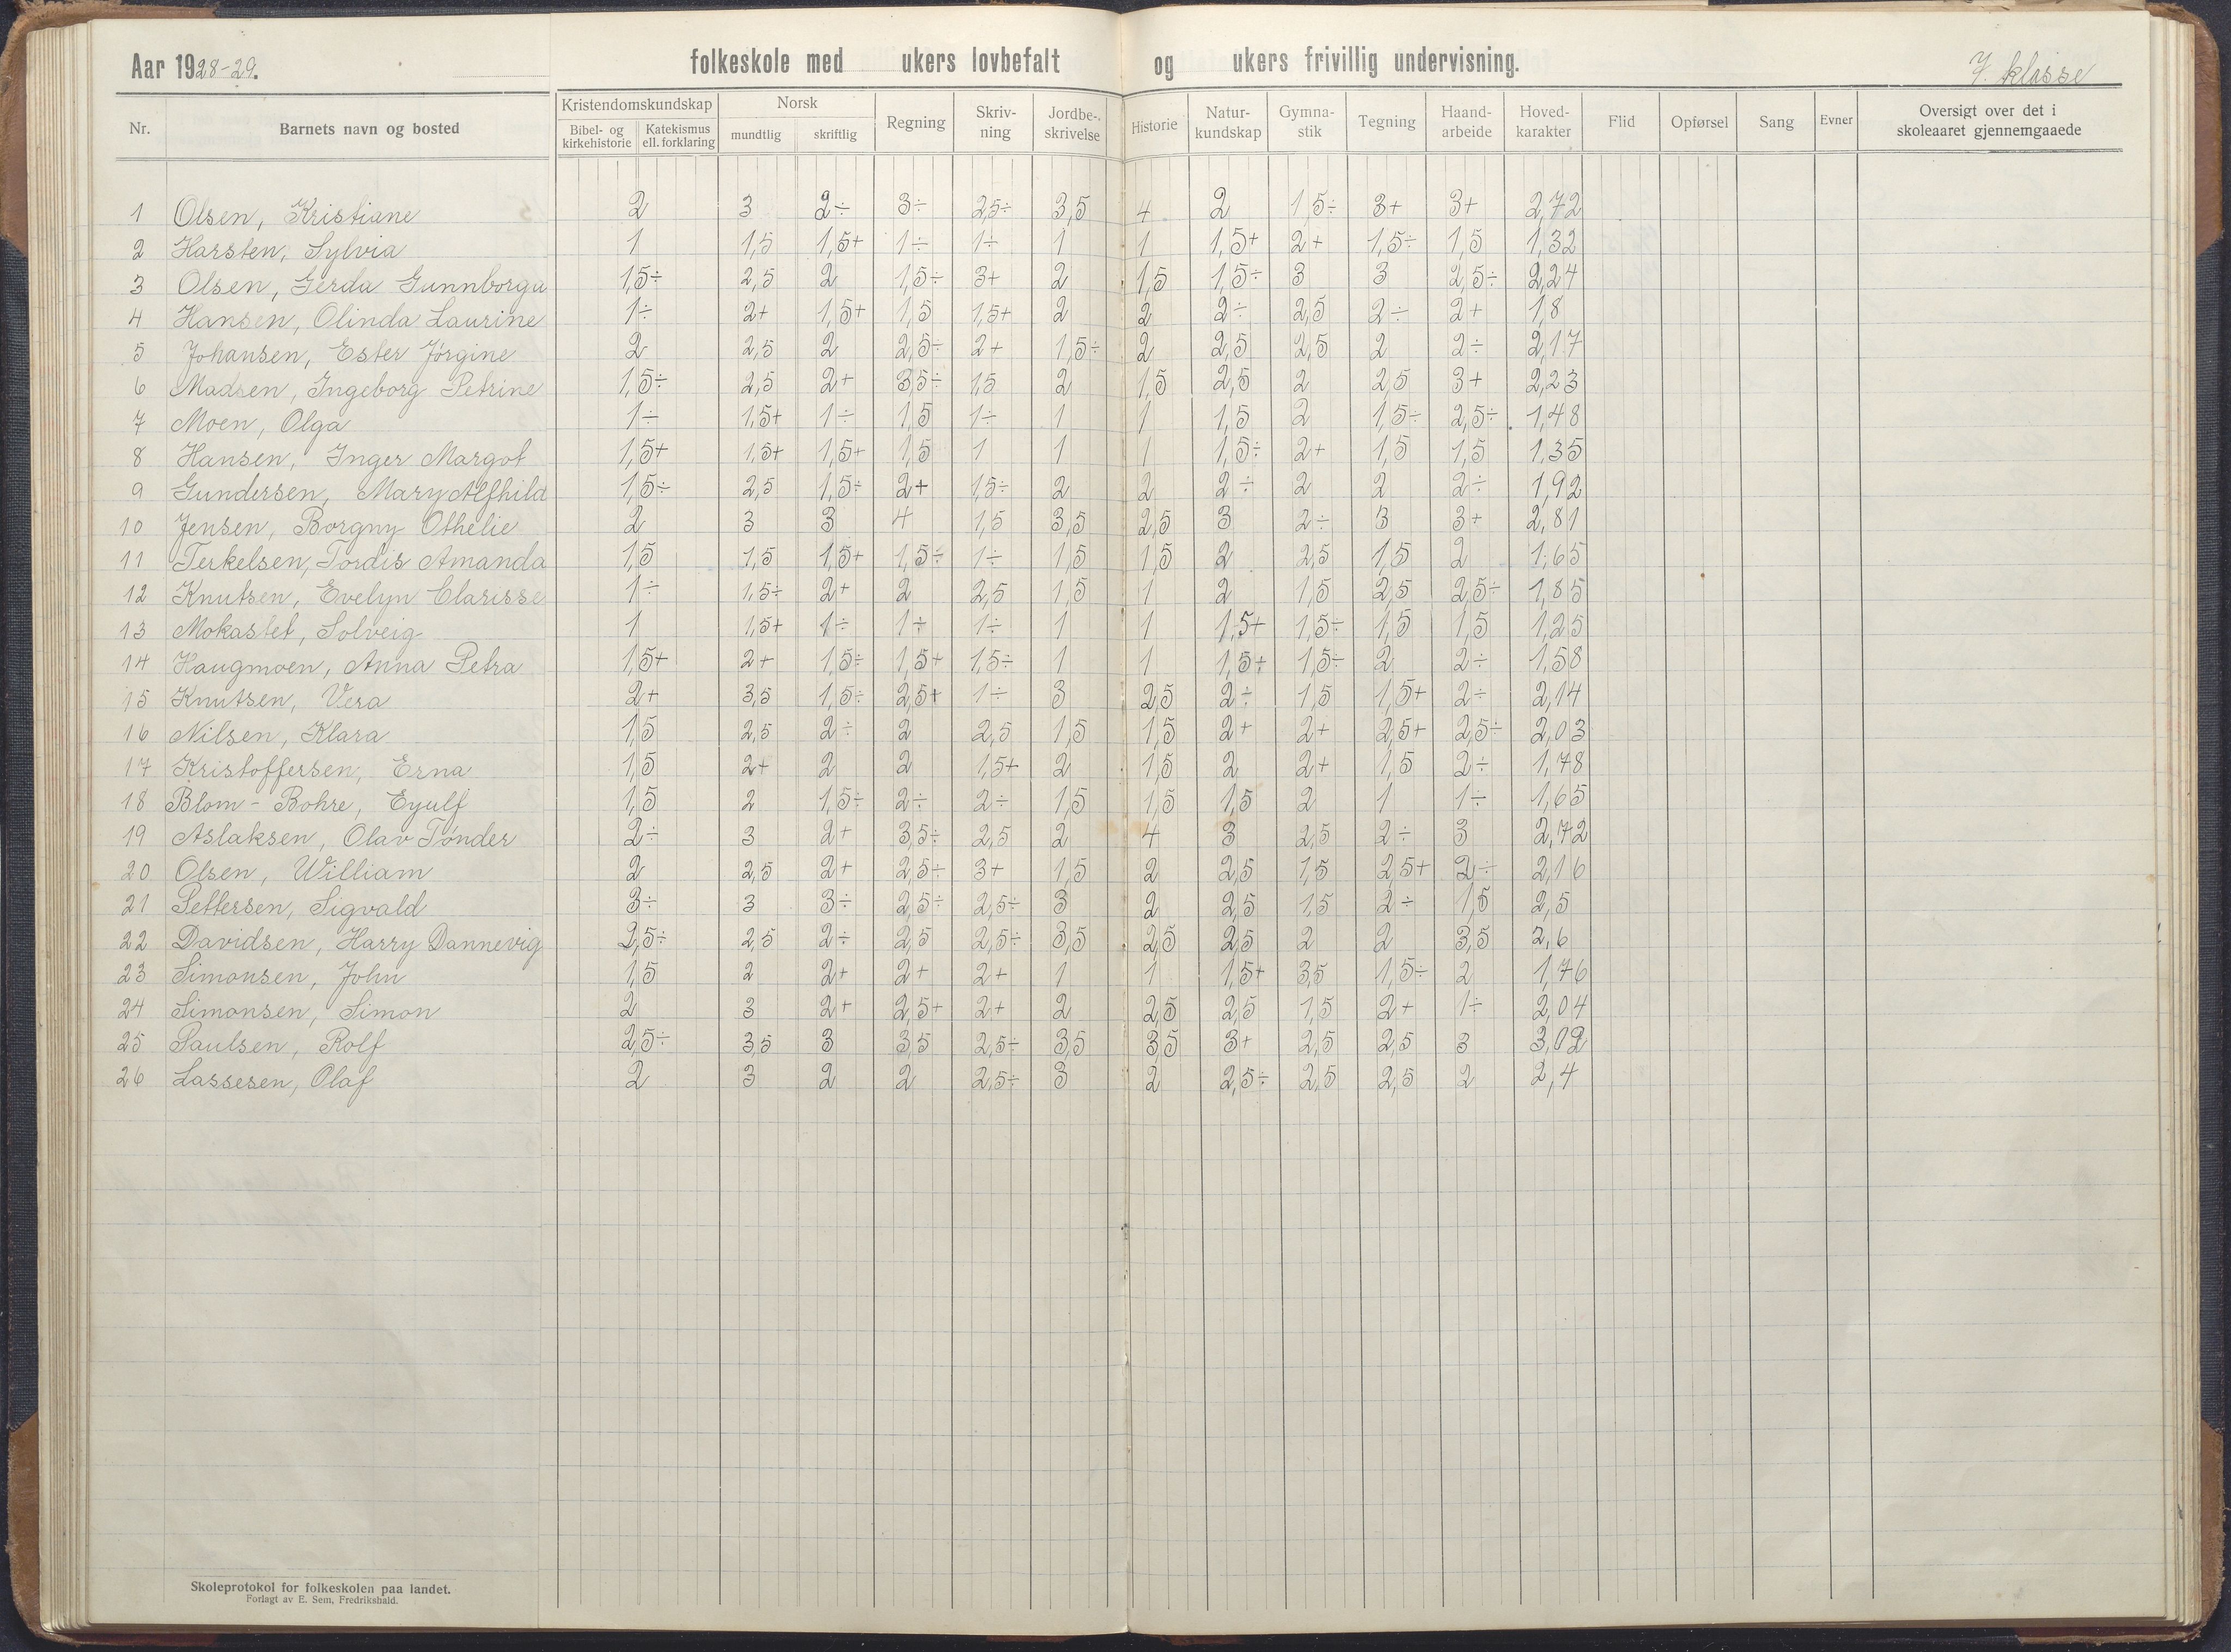 Aar 1928-29. folkeskole med ukers lovbefalt og ukers frivillig undervisning. 7. klasse
Nr. Barnets navn og bosted Kristendomskundskap Bibel- og kirkehistorie Katekismus ell. forklaring Norsk mundtlig skriftlig Regning Skriv-ning Jordbe-skrivelse Historie Natur-kundskap Gymna-stik Tegning Haand-arbeide Hoved-karakter Flid Opførsel Sang Evner Oversigt over det i skoleaaret gjennemgaaede
1 Olsen, Kristiane 2 3 2÷ 3÷ 2,5÷ 3,5 4 2 1,5÷ 3+ 3+ 2,72
2 Harsten, Sylvia 1 1,5 1,5+ 1÷ 1÷ 1 1 1,5+ 2+ 1,5÷ 1,5 1,32
3 Olsen, Gerda Gunnborga 1,5÷ 2,5 2 1,5÷ 3+ 2 1,5 1,5÷ 3 3 2,5÷ 2,24
4 Hansen, Olinda Laurine 1÷ 2+ 1,5+ 1,5 1,5+ 2 2 2÷ 2,5 2÷ 2+ 1,8
5 Johansen, Ester Jørgine 2 2,5 2 2,5÷ 2+ 1,5÷ 2 2,5 2,5 2 2÷ 2,17
6 Madsen, Ingeborg Petrine 1,5÷ 2,5 2+ 3,5÷ 1,5 2 1,5 2,5 2 2,5 3+ 2,23
7 Moen, Olga 1÷ 1,5+ 1÷ 1,5 1÷ 1 1 1,5 2 1,5÷ 2,5÷ 1,48
8 Hansen, Inger Margot 1,5+ 1,5+ 1,5+ 1,5 1 1 1 1,5÷ 2+ 1,5 1,5 1,35
9 Gundersen, Mary Alfhild 1,5÷ 2,5 1,5÷ 2+ 1,5÷ 2 2 2÷ 2 2 2÷ 1,92
10 Jensen, Borgny Othelie 2 3 3 4 1,5 3,5 2,5 3 2÷ 3 3+ 2,81
11 Terkelsen, Tordis Amanda 1,5 1,5 1,5+ 1,5÷ 1÷ 1,5 1,5 2 2,5 1,5 2 1,65
12 Knutsen, Evelyn Clarisse 1÷ 1,5÷ 2+ 2 2,5 1,5 1 2 1,5 2,5 2,5÷ 1,85
13 Mokastet, Solveig 1 1,5+ 1÷ 1÷ 1÷ 1 1 1,5+ 1,5÷ 1,5 1,5 1,25
14 Haugmoen, Anna Petra 1,5+ 2+ 1,5÷ 1,5+ 1,5÷ 1 1 1,5+ 1,5÷ 2 2÷ 1,58
15 Knutsen, Vera 2+ 3,5 1,5÷ 2,5+ 1÷ 3 2,5 2÷ 1,5 1,5+ 2÷ 2,14
16 Nilsen, Klara 1,5 2,5 2÷ 2 2,5 1,5 1,5 2+ 2+ 2,5+ 2,5÷ 2,03
17 Kristoffersen, Erna 1,5 2+ 2 2 1,5+ 2 1,5 2 2+ 1,5 2÷ 1,78
18 Blom-Bohre, Eyulf 1,5 2 1,5÷ 2÷ 2÷ 1,5 1,5 1,5 2 1 1÷ 1,65
19 Aslaksen, Olav Tønder 2÷ 3 2+ 3,5÷ 2,5 2 4 3 2,5 2÷ 3 2,72
20 Olsen, William 2 2,5 2+ 2,5÷ 3+ 1,5 2 2,5 1,5 2,5+ 2÷ 2,16
21 Pettersen, Sigvald 3÷ 3 3÷ 2,5÷ 2,5÷ 3 2 2,5 1,5 2÷ 1,5 2,5
22 Davidsen, Harry Dannevig 2,5÷ 2,5 2÷ 2,5 2,5÷ 3,5 2,5 2,5 2 2 3,5 2,6
23 Simonsen, John 1,5 2 2+ 2+ 2+ 1 1 1,5+ 3,5 1,5÷ 2 1,76
24 Simonsen, Simon 2 3 2+ 2,5+ 2+ 2 2,5 2,5 1,5 2+ 1÷ 2,04
25 Paulsen, Rolf 2,5÷ 3,5 3 3,5 2,5÷ 3,5 3,5 3+ 2,5 2,5 3 3,02
26 Lassesen, Olaf 2 3 2 2 2,5÷ 3 2 2,5÷ 2,5 2,5 2 2,4
Skoleprotokol for folkeskolen paa landet.
Forlagt av E. Sem, Fredrikshald.